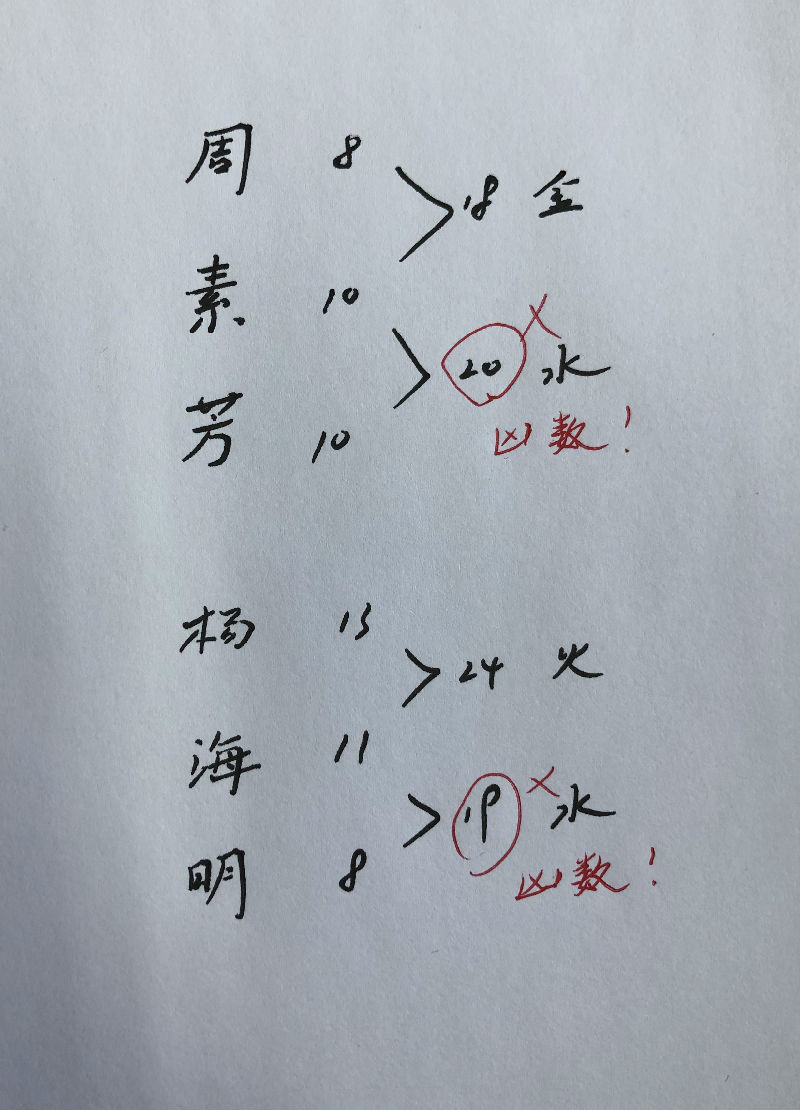 周 8
18 金
素 10
× 
20 水
凶数!
芳 10
杨 13
24 火
海 11
×
19 水
凶数!
明 8